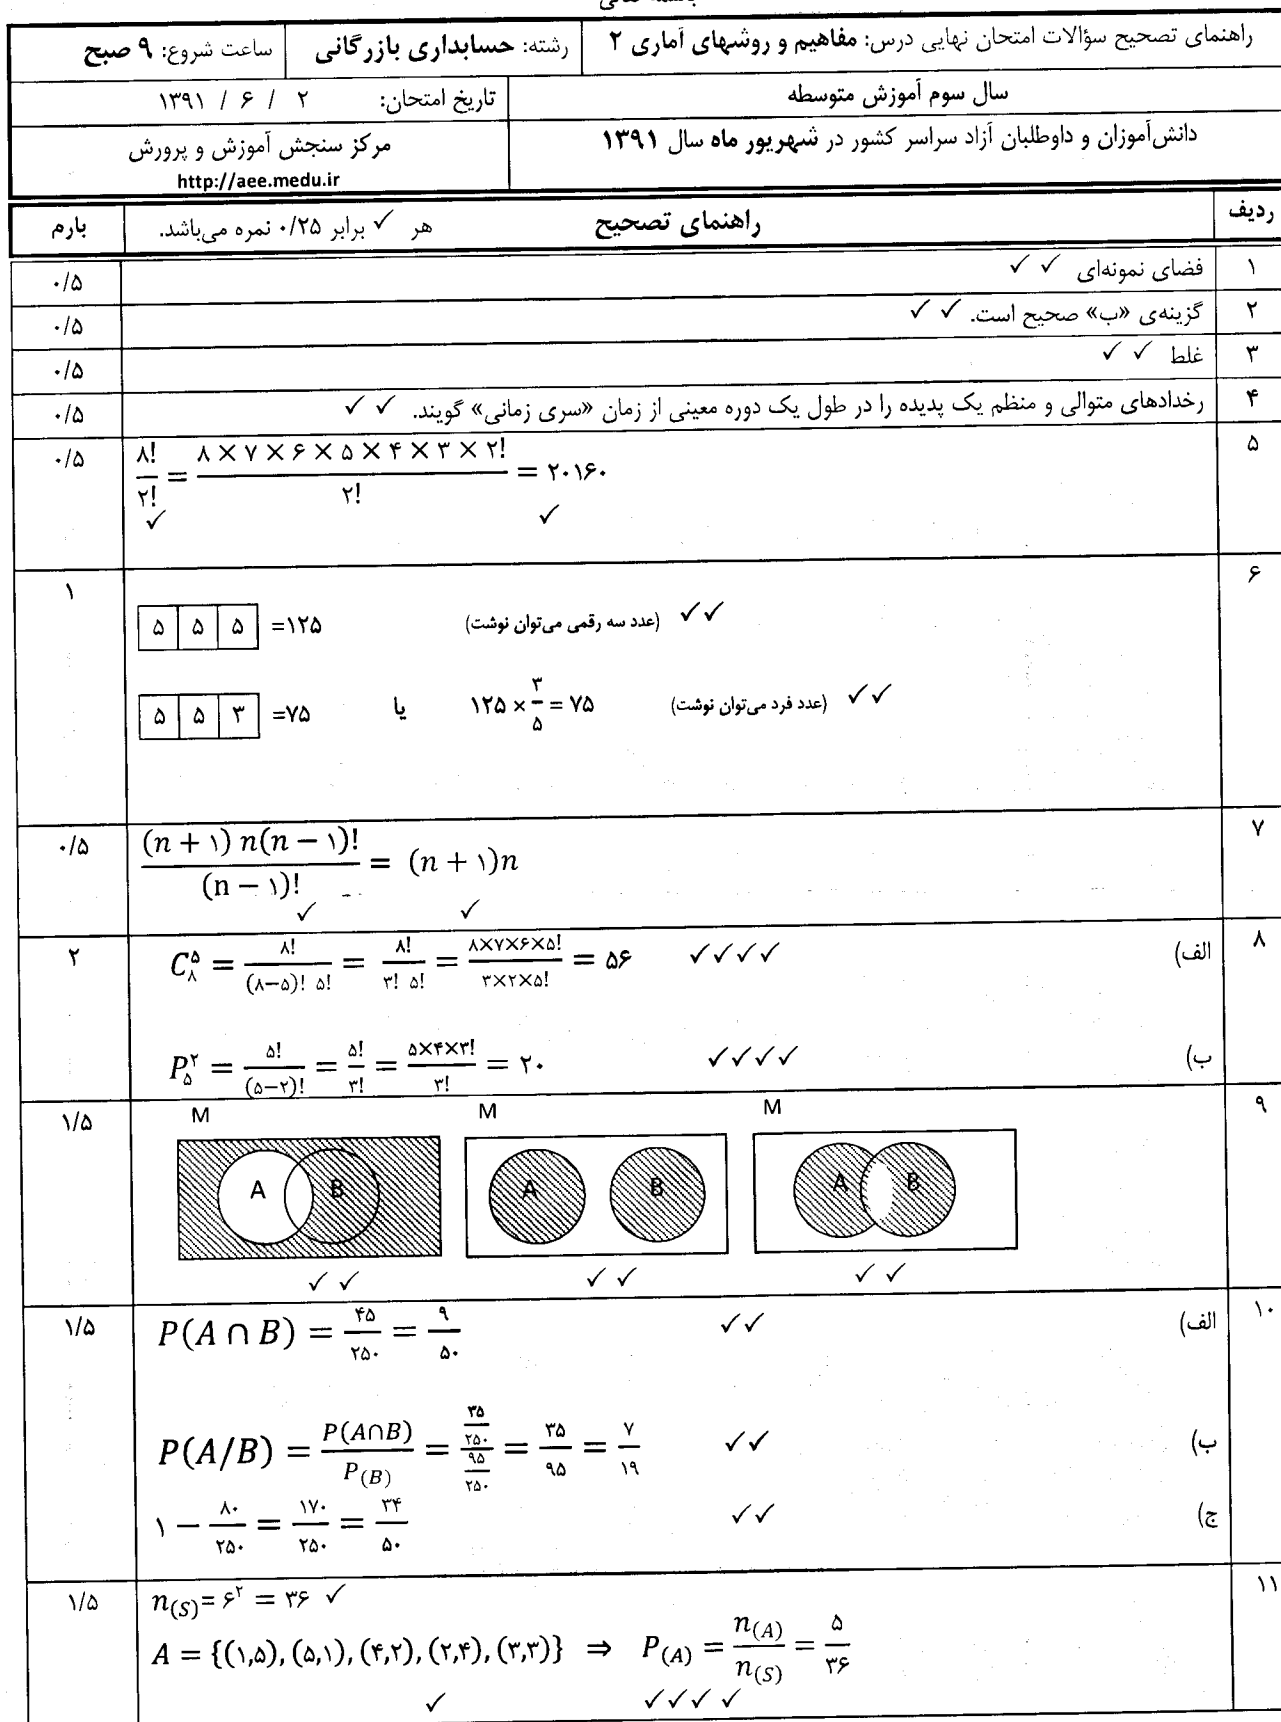 راهنمای تصحیح سؤالات امتحان نهایی درس: مفاهیم و روشهای آماری ۲ رشته: حسابداری بازرگانی ساعت شروع: ۹ صبح
سال سوم آموزش متوسطه تاریخ امتحان: ۲ / ۶ / ۱۳۹۱
دانش‌آموزان و داوطلبان آزاد سراسر کشور در شهریور ماه سال ۱۳۹۱ مرکز سنجش آموزش و پرورش
http://aee.medu.ir
ردیف راهنمای تصحیح هر ✓ برابر ۰/۲۵ نمره می‌باشد. بارم
۱ فضای نمونه‌ای ✓ ✓ ۰/۵
۲ گزینه‌ی «ب» صحیح است. ✓ ✓ ۰/۵
۳ غلط ✓ ✓ ۰/۵
۴ رخدادهای متوالی و منظم یک پدیده را در طول یک دوره معینی از زمان «سری زمانی» گویند. ✓ ✓ ۰/۵
۵ ۸!/۲! = ۸×۷×۶×۵×۴×۳×۲!/۲! = ۲۰۱۶۰ ۰/۵
✓ ✓
۶ ۵ ۵ ۵ =۱۲۵ (عدد سه رقمی می‌توان نوشت) ✓✓ ۱
۵ ۵ ۳ =۷۵ یا ۱۲۵ × ۳/۵ = ۷۵ (عدد فرد می‌توان نوشت) ✓✓
۷ (n + ۱) n(n − ۱)!/(n − ۱)! = (n + ۱)n ۰/۵
✓ ✓
۸ الف) C₈⁵ = ۸!/(۸−۵)! ۵! = ۸!/۳! ۵! = ۸×۷×۶×۵!/۳×۲×۵! = ۵۶ ✓✓✓✓ ۲
ب) P₅² = ۵!/(۵−۲)! = ۵!/۳! = ۵×۴×۳!/۳! = ۲۰ ✓✓✓✓
۹ M M M ۱/۵
A B A B A B
✓✓ ✓✓ ✓✓
۱۰ الف) P(A ∩ B) = ۴۵/۲۵۰ = ۹/۵۰ ✓✓ ۱/۵
ب) P(A/B) = P(A∩B)/P(B) = (۳۵/۲۵۰)/(۹۵/۲۵۰) = ۳۵/۹۵ = ۷/۱۹ ✓✓
ج) ۱ − ۸۰/۲۵۰ = ۱۷۰/۲۵۰ = ۳۴/۵۰ ✓✓
۱۱ n(S)= ۶² = ۳۶ ✓ ۱/۵
A = {(۱,۵), (۵,۱), (۴,۲), (۲,۴), (۳,۳)} ⇒ P(A) = n(A)/n(S) = ۵/۳۶
✓ ✓✓✓✓